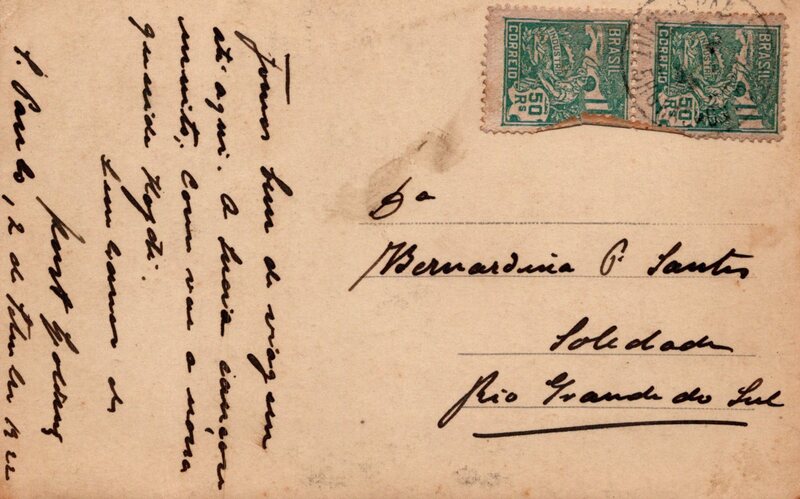 Fomos bem de viagem
até aqui. A Lucia cançou
muito; Como vae a nossa
querida
Lembranças de
S. Paulo, 2 de 1922
Dª
Bernardina P. Santos
Soledade
Rio Grande do Sul
BRASIL
CORREIO
50 Rs
BRASIL
CORREIO
50 Rs